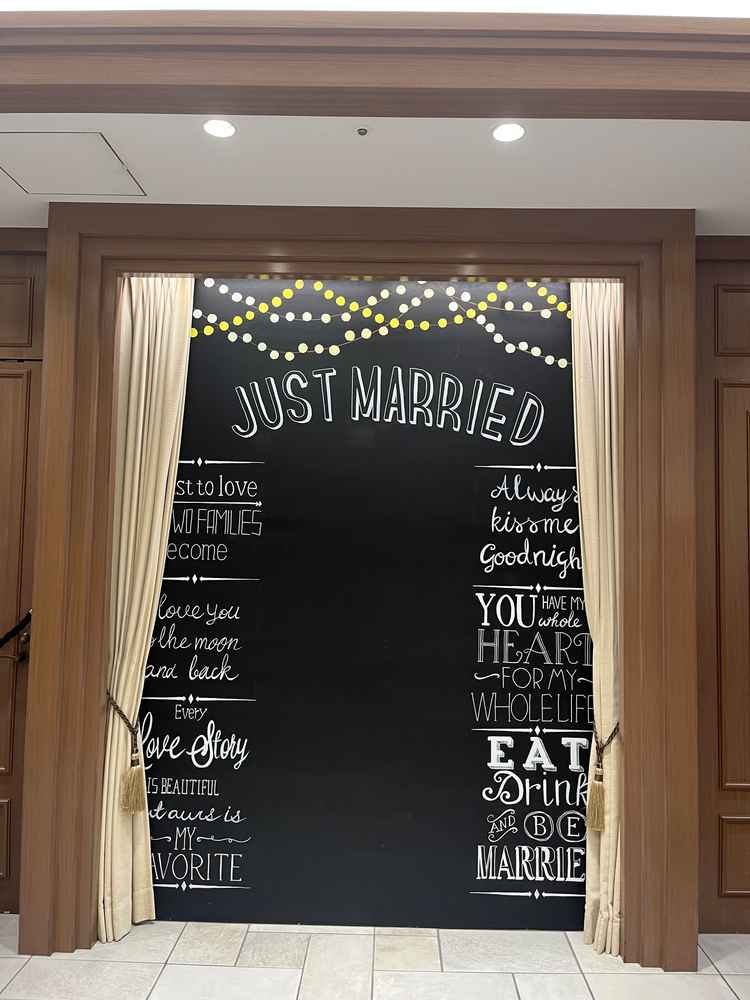 JUST MARRIED
st to love
WO FAMILIES
ecome
love you
the moon
and back
Every
love Story
IS BEAUTIFUL
t ours is
MY
AVORITE
Always
kiss me
Goodnigh
YOU HAVE MY
whole
HEART
FOR MY
WHOLE LIFE
EAT
Drink
AND BE
MARRIE